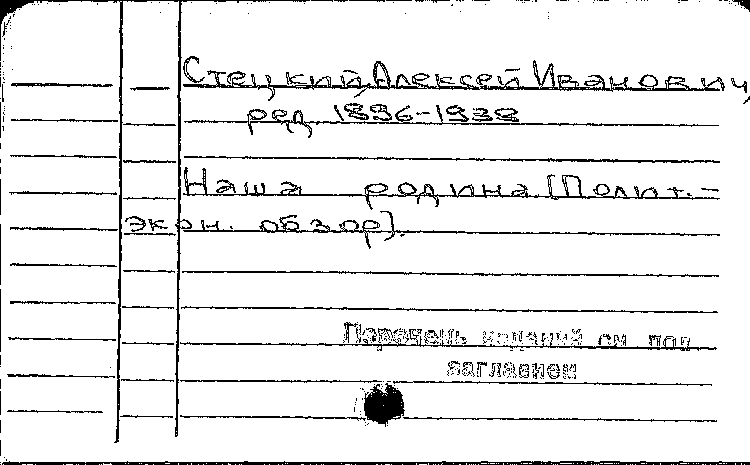 Стецкий, Алексей Иванович,
ред. 1896-1938
Наша родина. [Полит.-
экон. обзор].
Перечень изданий см под
заглавием